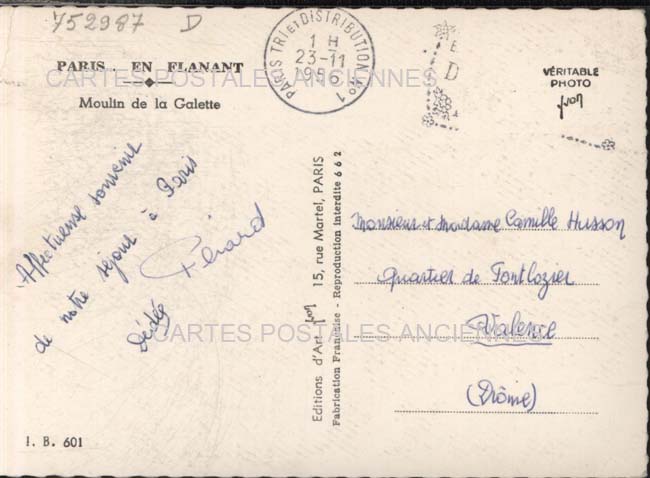 752987 D
PARIS . EN FLANANT
Moulin de la Galette
PARIS TRI et DISTRIBUTION No 1
1 H
23-11
VÉRITABLE
PHOTO
yvon
CARTES POSTALES ANCIENNES
Affectueux souvenir
de notre séjour à Paris
Dédée
Gérard
Editions d'Art yvon 15, rue Martel, PARIS
Fabrication Française - Reproduction interdite 662
Monsieur et Madame Camille Husson
Quartier de Fontlozier
Valence
(Drôme)
CARTES POSTALES ANCIENNES
I. B. 601